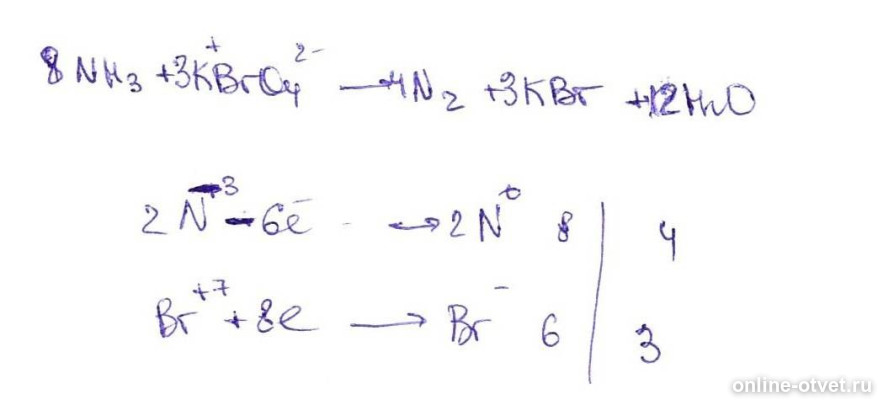 8NH₃ +3K⁺BrO₄²⁻ → 4N₂ +3KBr +12H₂O
2N⁻³ - 6e⁻ → 2N⁰ 8 | 4
Br⁺⁷ + 8e → Br⁻ 6 | 3
online-otvet.ru